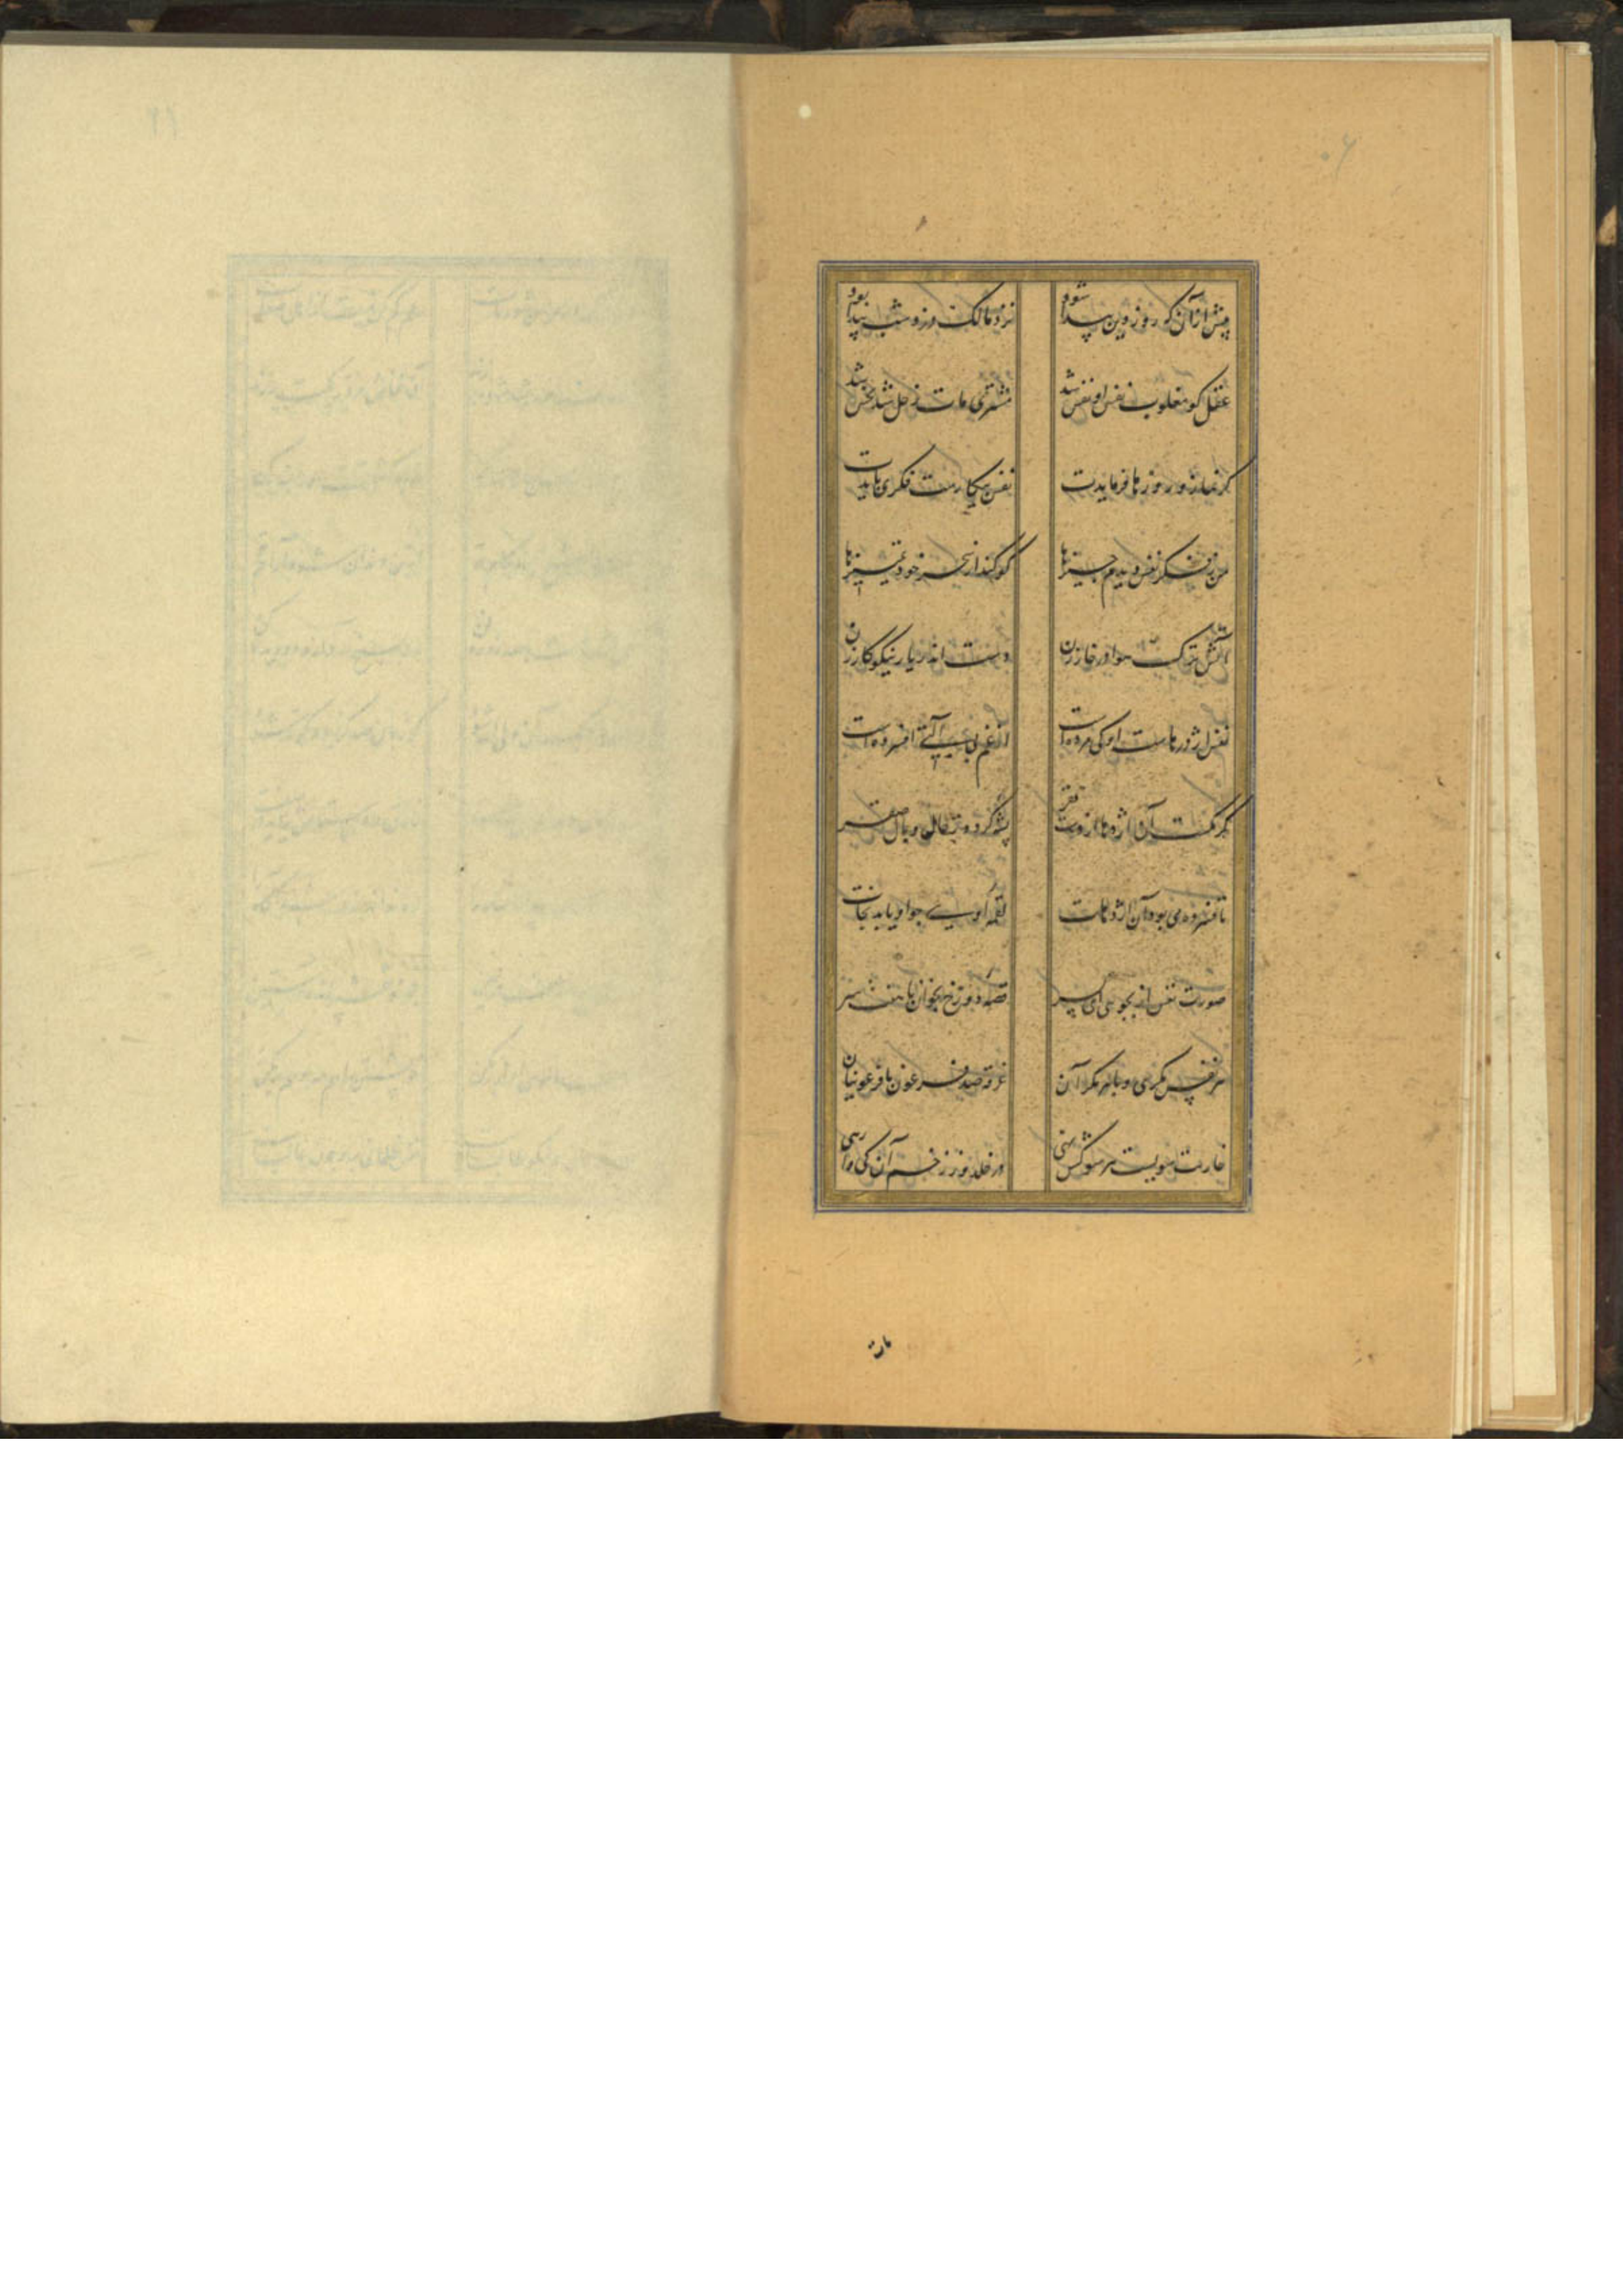 پیش از آن کو روز دین پیدا شود نزد مالک دزد شب پیدا بود
عقل کو مغلوب نفس او نفس شد مشتری مات زحل شد نحس شد
کر نماز و روزها فرمایدت نفس مکارست فکری بایدت
من ز مکر نفس دیدم چیزها کو کند از سحر خود تمییزها
آتش ترک هوا در خار زن دست اندر یار نیکوکار زن
نفس اژدرهاست او کی مرده است از غم بی آلتی افسرده است
کرمکست آن اژدها از دست فقر پشه کردد صقر
تا فسرده می بود آن اژدهات لقمه اویی چو او یابد نجات
صورت نفس ار بجویی ای پسر قصه دوزخ بخوان با هفت در
هر نفس مکری و در هر مکر آن غرقه صد فرعون با فرعونیان
خار سه سویست هر سو کش نهی در خلد وز زخم آن کی وارهی